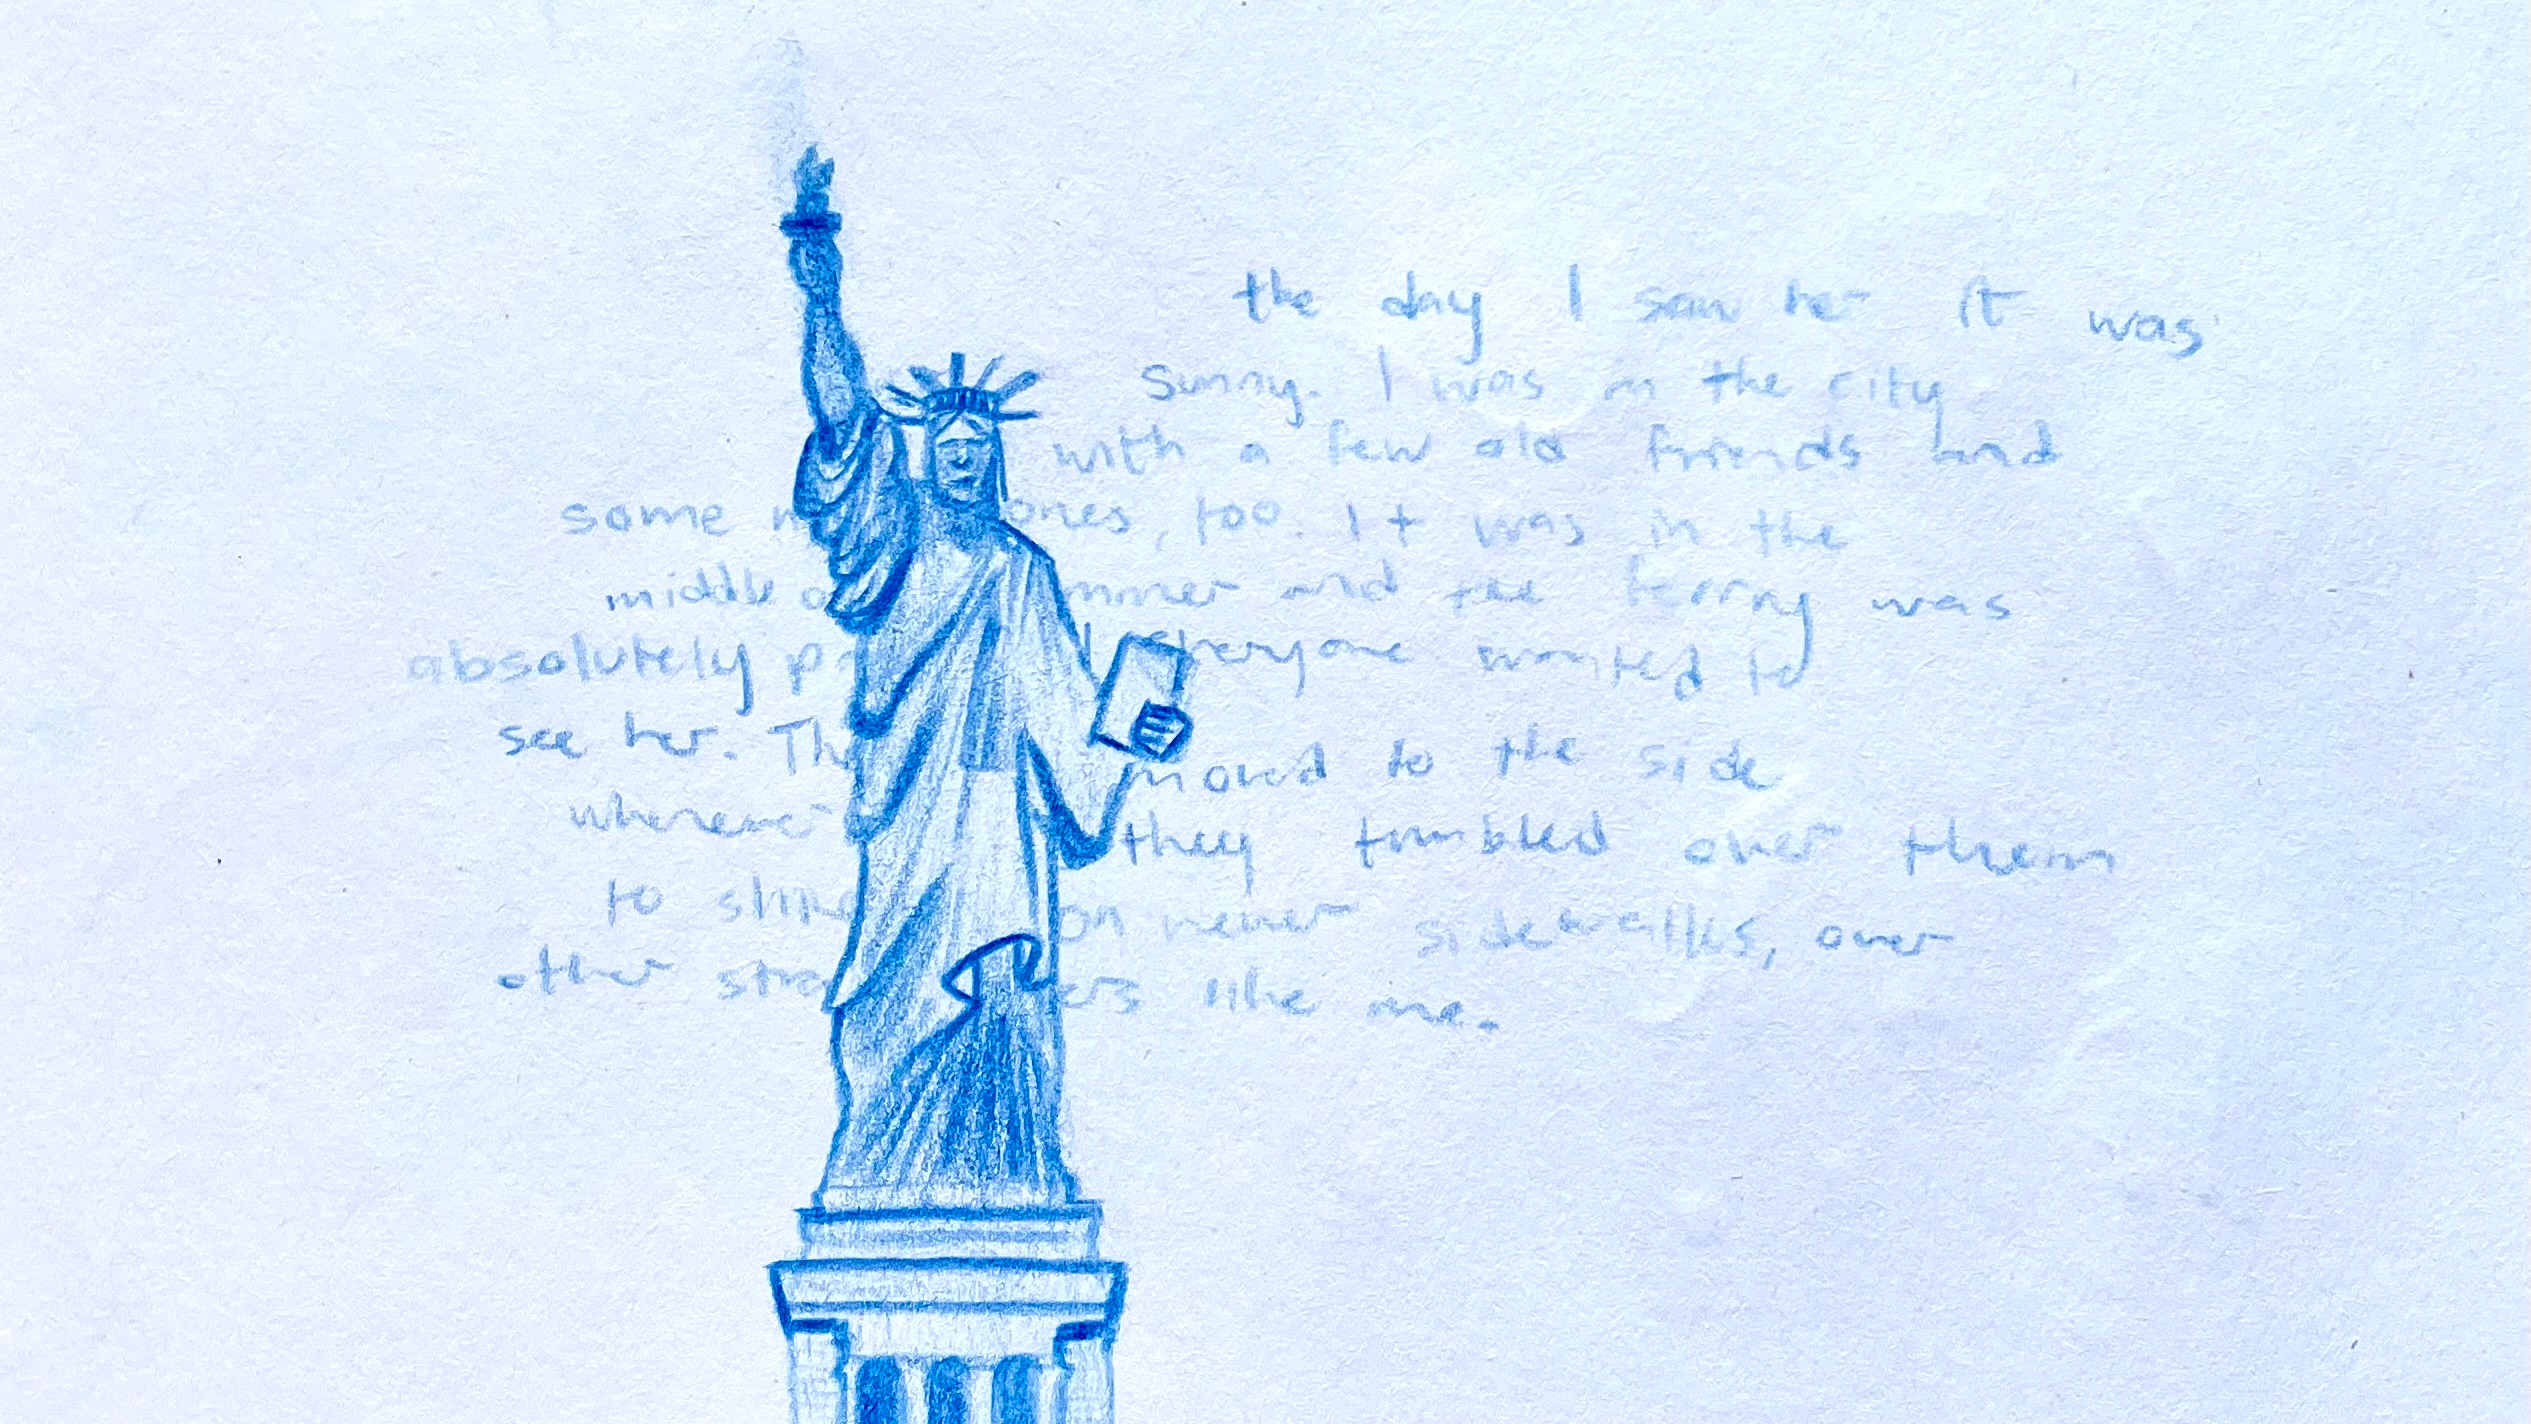 the day I saw her it was
sunny. I was in the city
with a few old friends and
some ones, too. It was in the
middle and the ferry was
absolutely everyone wanted to
see her. moved to the side
whenever they tumbled over them
to on newer sidewalks, over
other strangers like me.